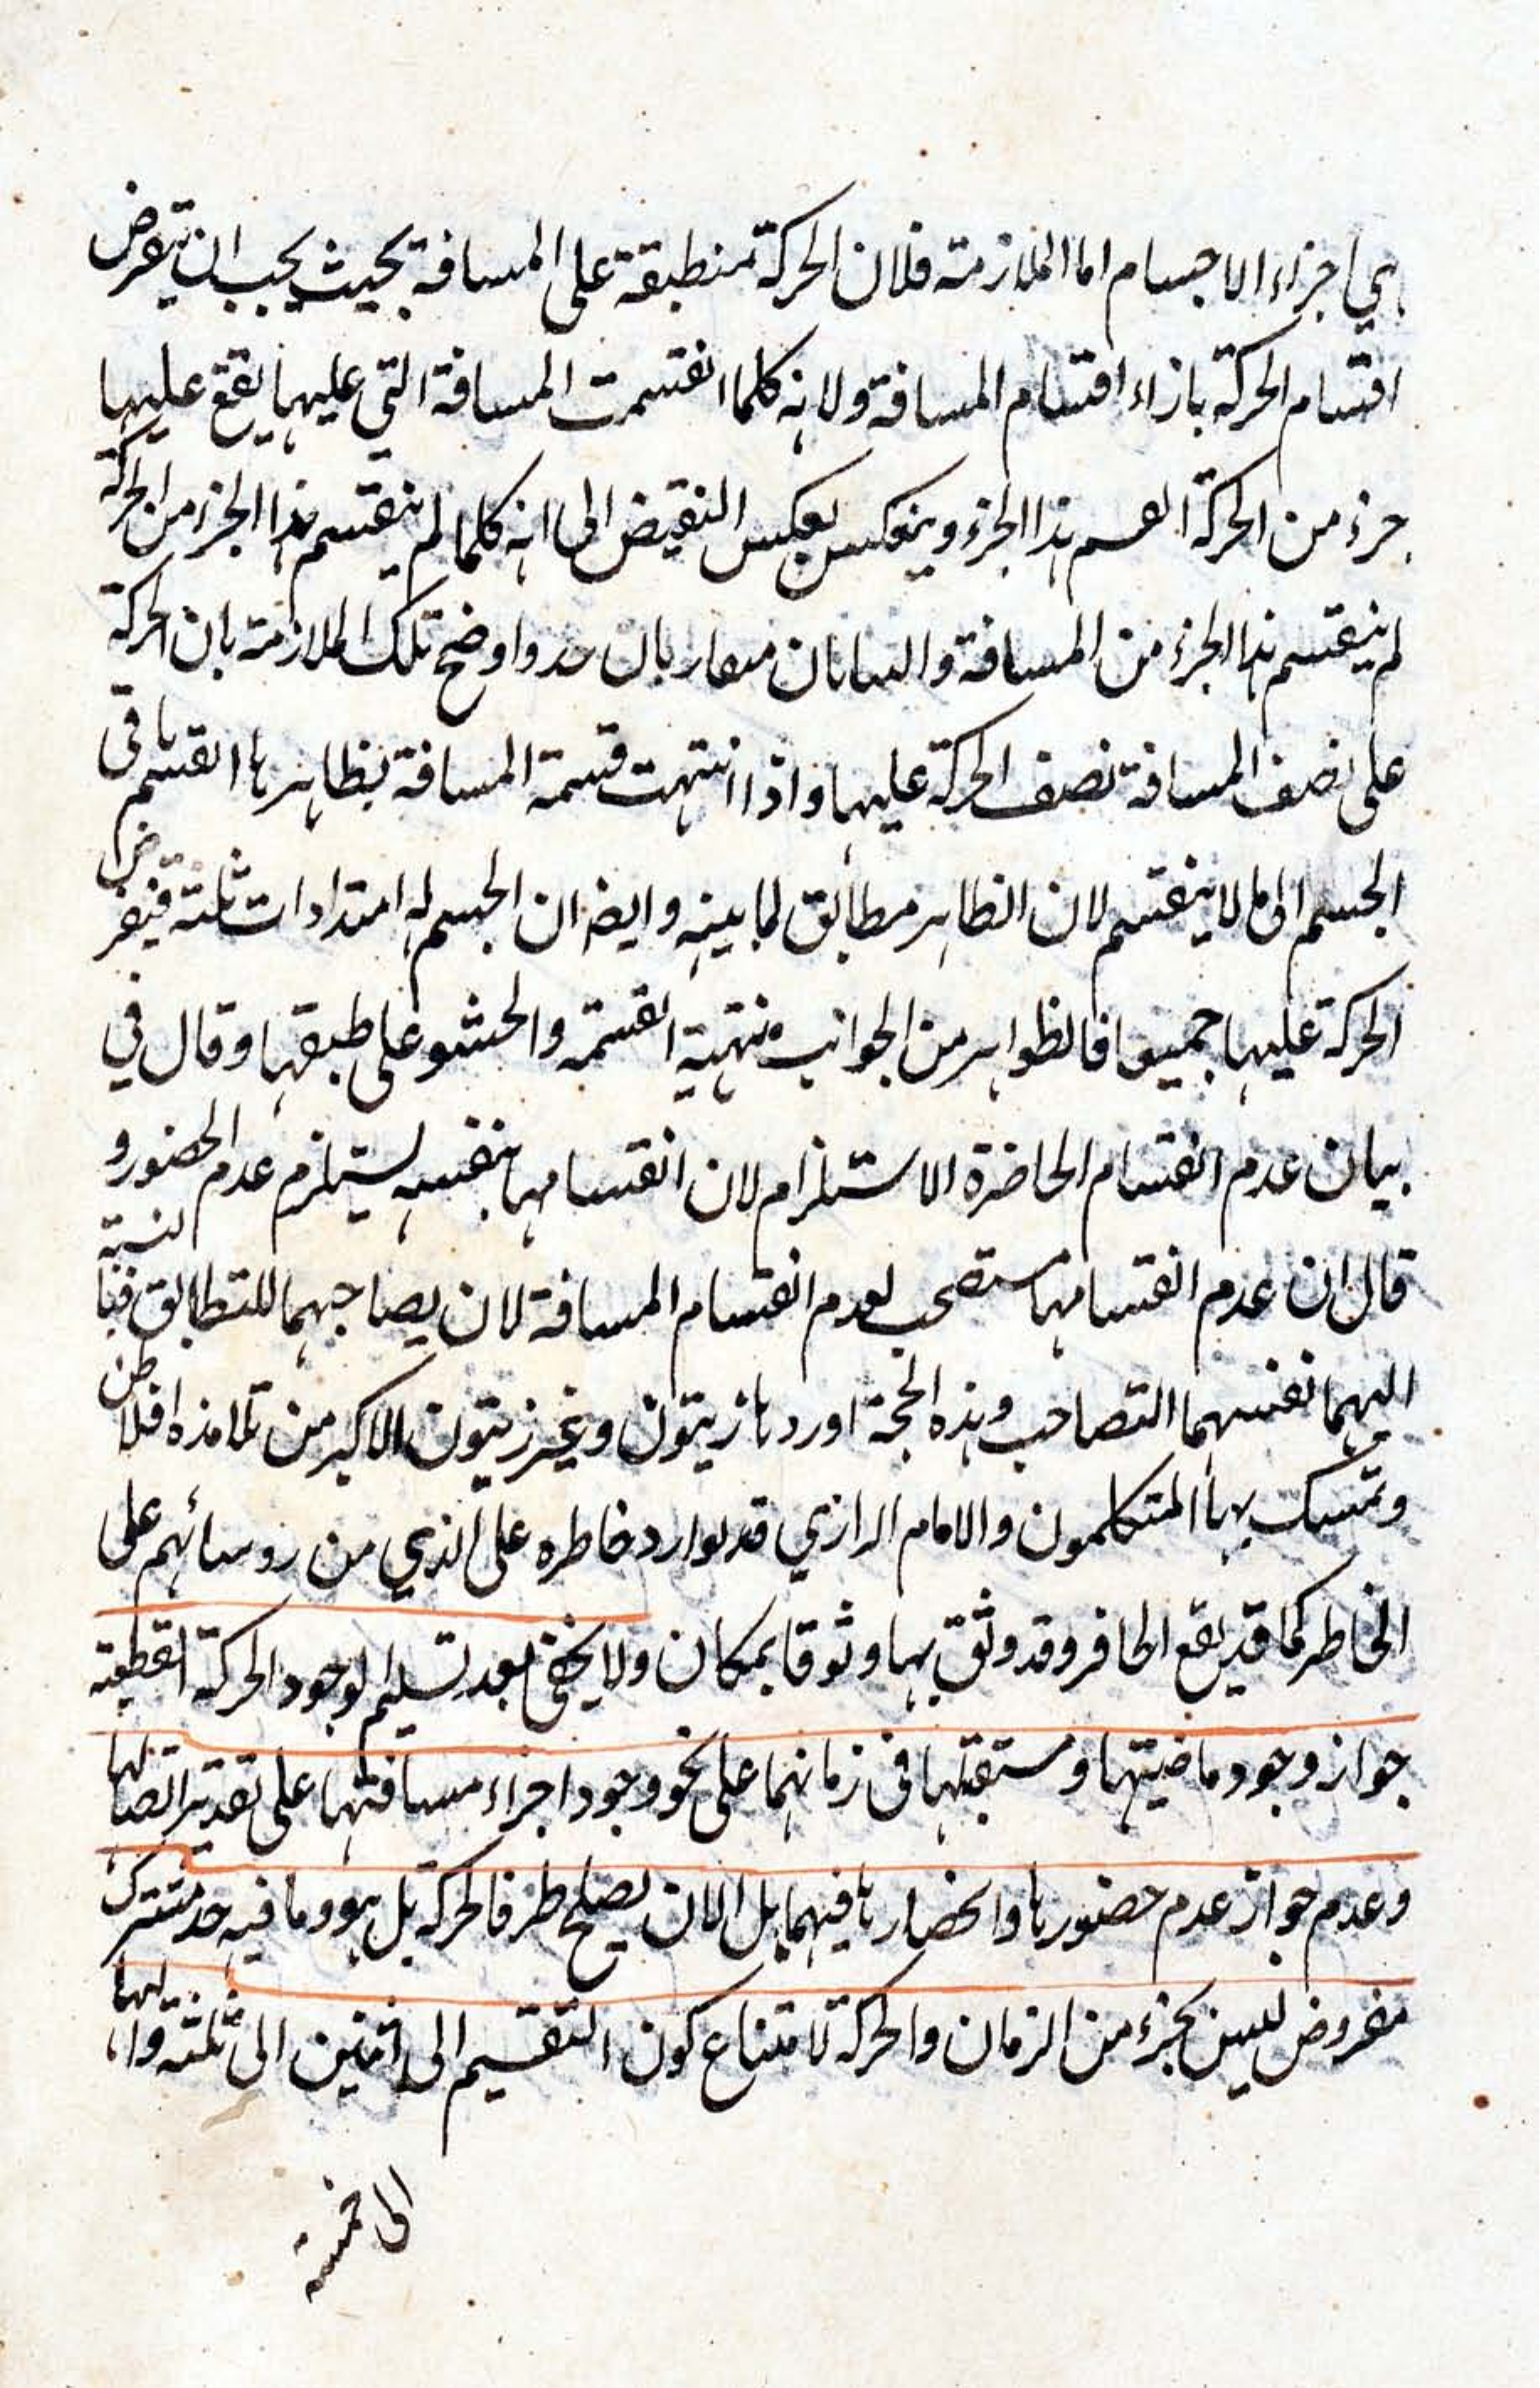 هي اجزاء الاجسام اما الملازمة فلان الحركة منطبقة على المسافة بحيث يجب ان يتعرض
اقتسام الحركة بازاء اقتسام المسافة ولانه كلما انقسمت المسافة التي عليها يقع عليها
جزء من الحركة انقسم هذا الجزء وينعكس بعكس النقيض الى انه كلما لم ينقسم هذا الجزء من الحركة
لم ينقسم هذا الجزء من المسافة والبيانان متقاربان واوضح تلك الملازمة بان الحركة
على نصف المسافة نصف الحركة عليها واذا انتهت قسمة المسافة بظاهرها انقسم باقي
الجسم الى ما لا ينقسم لان الظاهر مطابق لما بينه وايضا ان الجسم له امتدادات ثلثة فيفرض
الحركة عليها جميعا فالظواهر من الجوانب منتهية القسمة والحشو على طبقها وقال في
بيان عدم انقسام الحاضرة الاستلزام لان انقسامها بنفسه يستلزم عدم الحضور و
قال ان عدم انقسامها مستصحب لعدم انقسام المسافة لان يصاحبهما للتطابق فبالنسبة
اليهما نفسهما التصاحب وهذه الحجة اوردها زيتون وغير زيتون الاكبر من تلامذه افلاطن
وتمسك بها المتكلمون والامام الرازي قد توارد خاطره على الذي من روسائهم على
الخاطر كما قد يقع الحافر وقد وثق بها وثوقا بمكان ولا يخفى بعد تسليم لوجود الحركة القطعية
جواز وجود ماضيتها ومستقبلها في زمانهما على نحو وجود اجزاء مسافتها على تقدير اتصالها
وعدم جواز عدم حضورها وانحضارها فيهما بل الان يصلح طرفا لحركة بل هو وما فيه حد مشترك
مفروض ليس بجزء من الزمان والحركة لامتناع كون التقسيم الى اثنين الى ثلثة واليها
الى خمسة